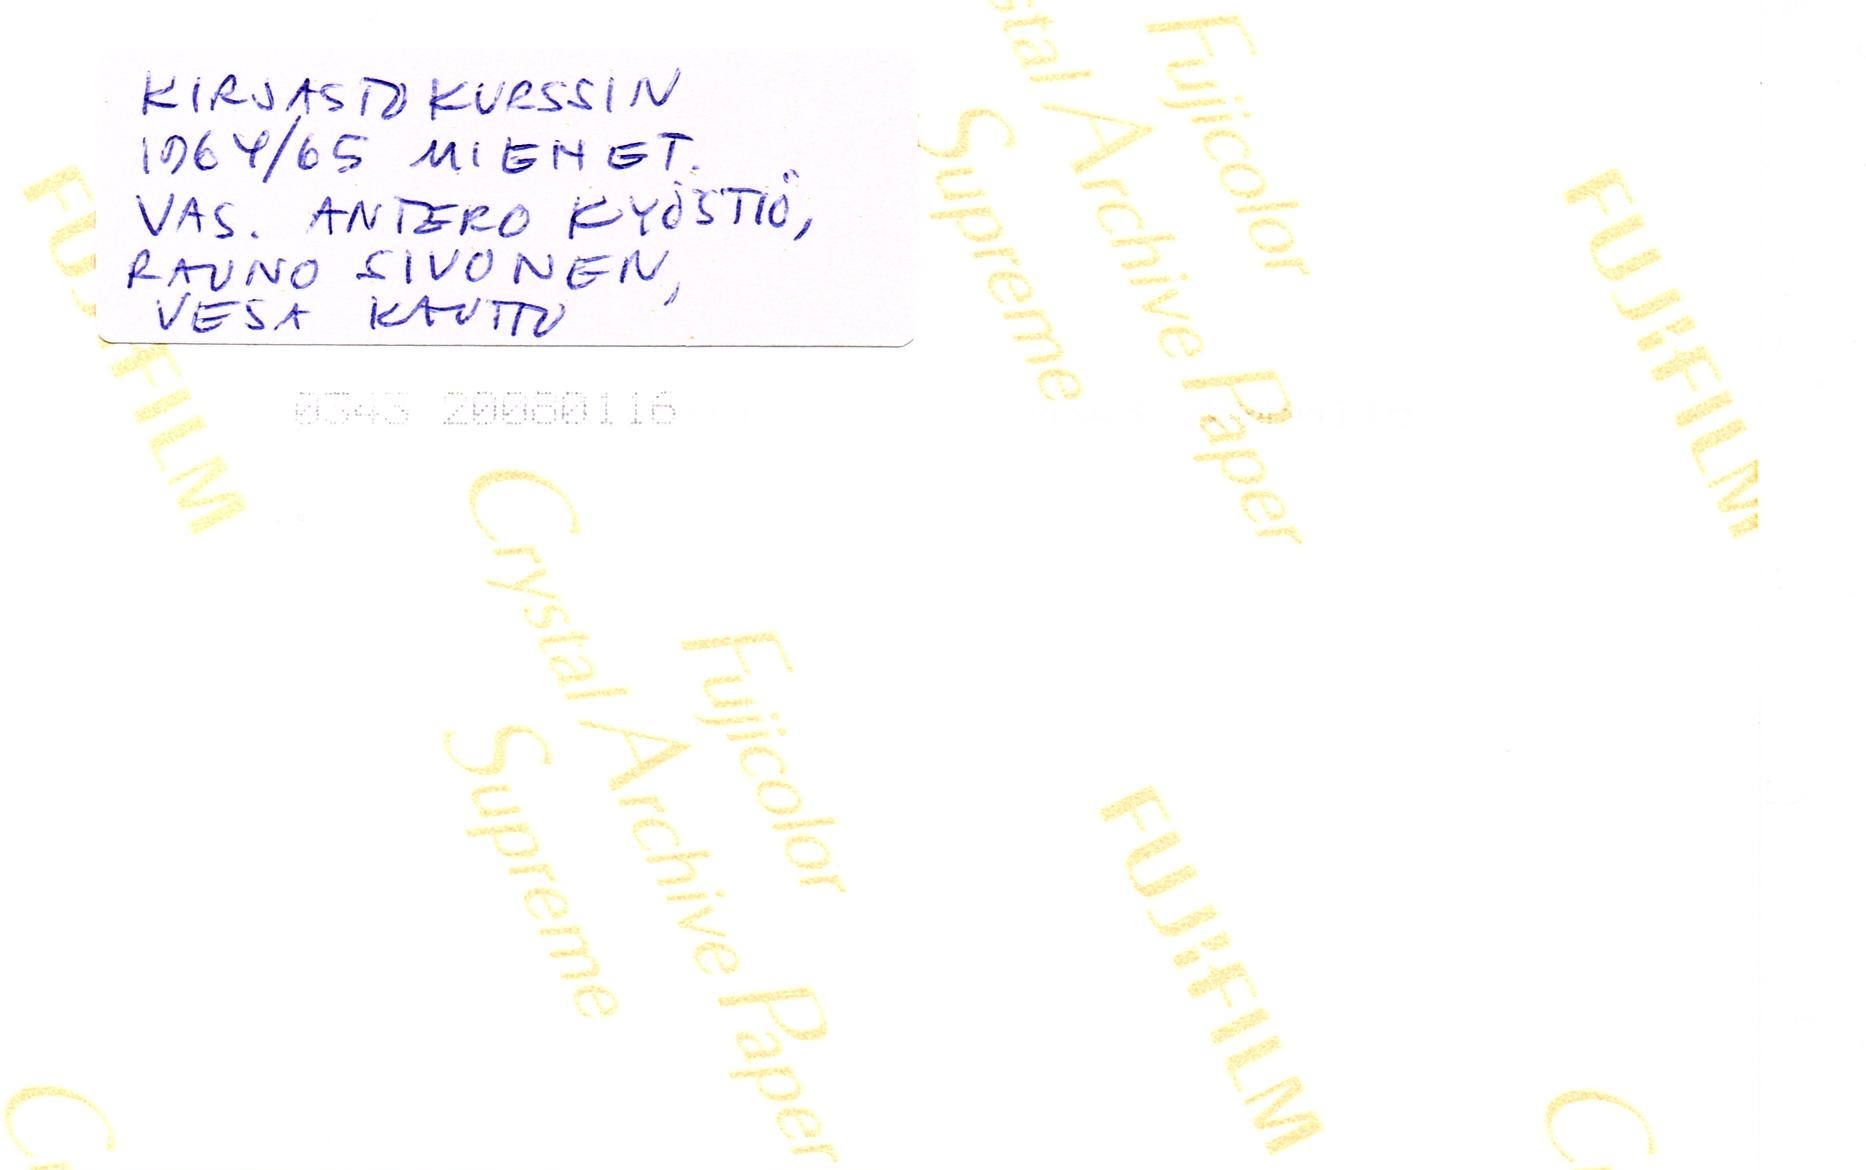 KIRJASTOKURSSIN
1964/65 MIEHET.
VAS. ANTERO KYÖSTIÖ,
RAUNO SIVONEN,
VESA KAUTTO
0343 20080116
FUJIFILM
Crystal Archive Paper
Supreme
Fujicolor
FUJIFILM
Fujicolor
Crystal Archive Paper
Supreme
FUJIFILM